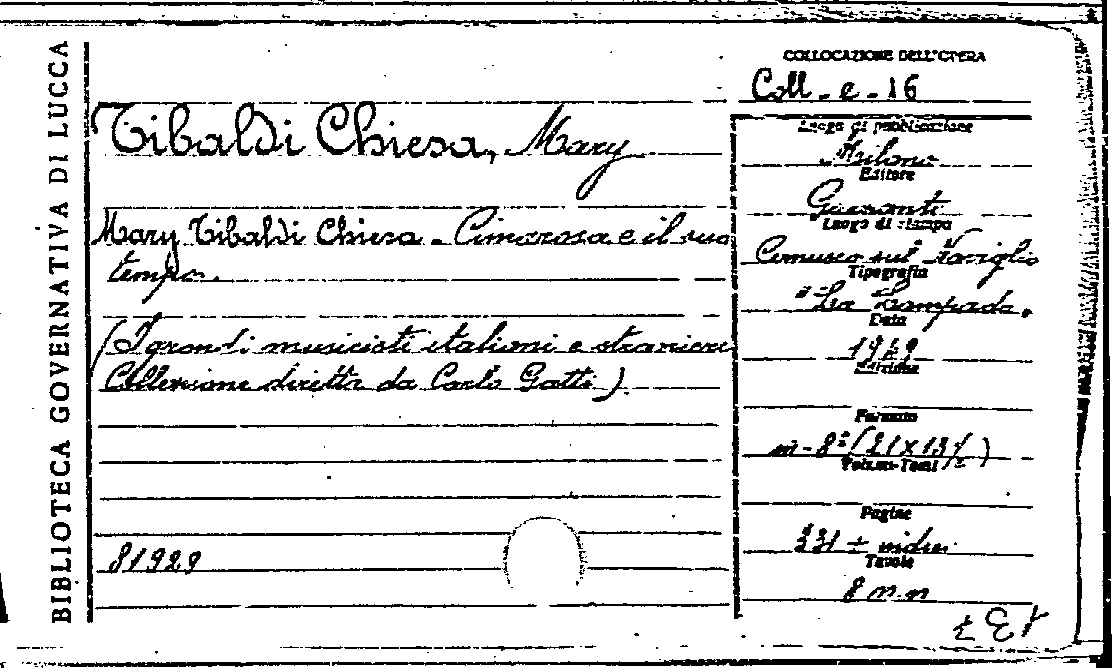 BIBLIOTECA GOVERNATIVA DI LUCCA
COLLOCAZIONE DELL'OPERA
Coll - e - 16
Tibaldi Chiesa, Mary
Mary Tibaldi Chiesa - Cimarosa e il suo
tempo.
(I grandi musicisti italiani e stranieri
Collezione diretta da Carlo Gatti).
81929
Luogo di pubblicazione
Milano
Editore
Garzanti
Luogo di stampa
Cernusco sul Naviglio
Tipografia
"La Lampada"
Data
1949
Edizione
Formato
in-8° (21x13½)
Volumi-Tomi
Pagine
331 + indici
Tavole
8 n.n